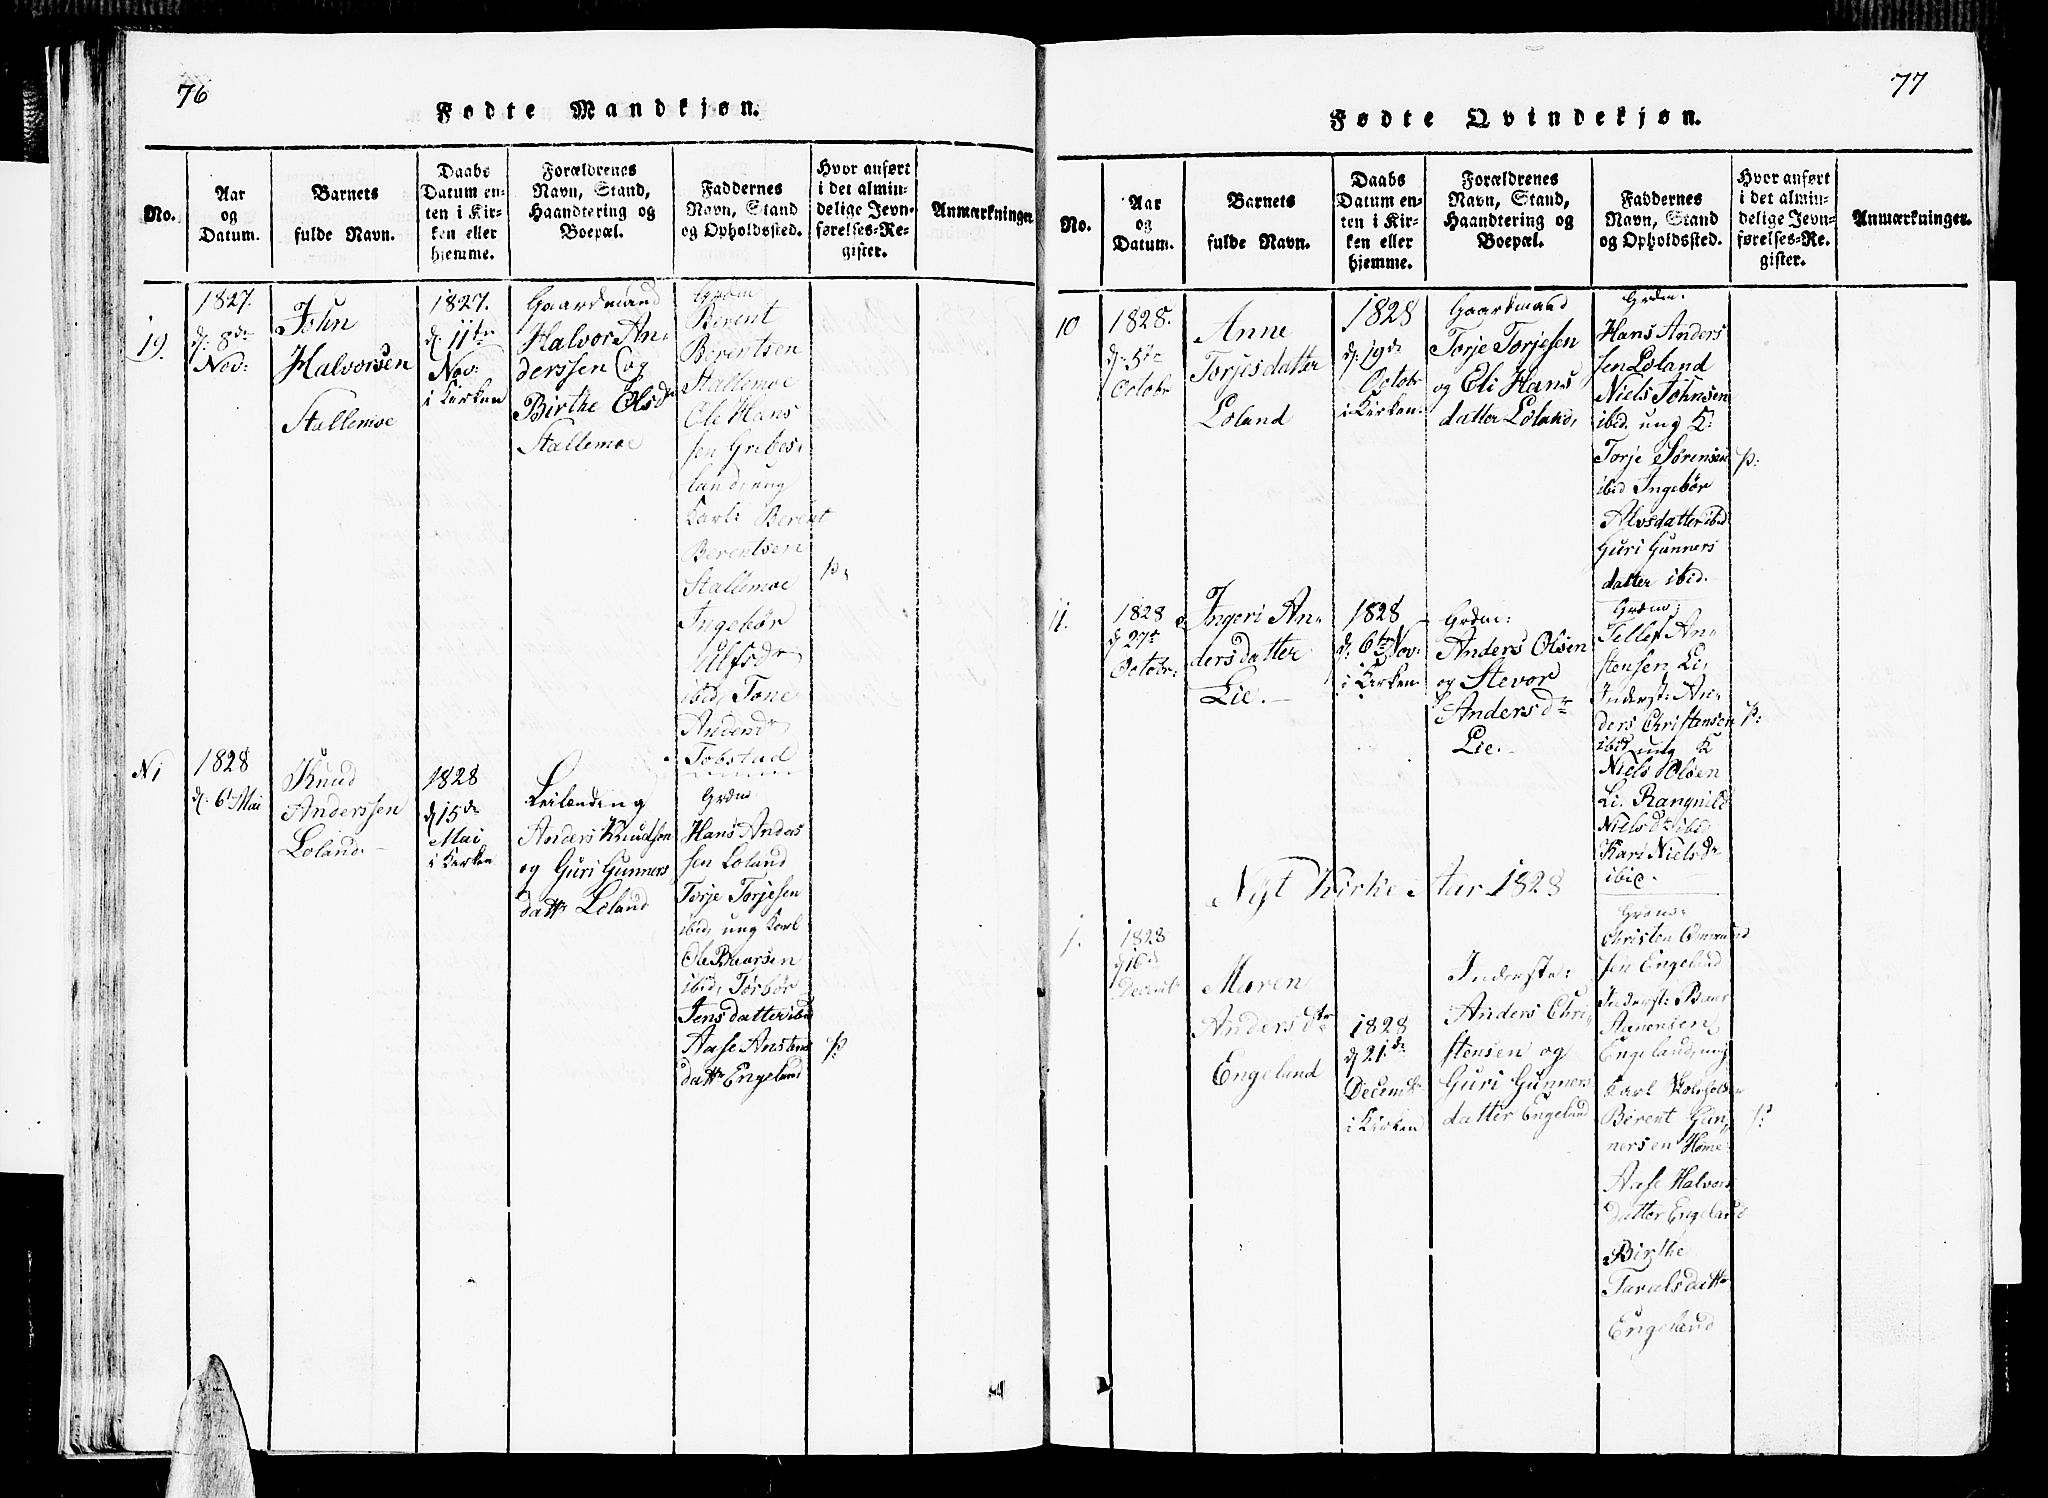 76
Fødte Mandkjøn.
No.
Aar
og
Datum.
Barnets
fulde Navn.
Daabs
Datum en-
ten i Kir-
ken eller
hjemme.
Forældrenes
Navn, Stand,
Haandtering og
Boepæl.
Faddernes
Navn, Stand
og Opholdssted.
Hvor anført
i det almin-
delige Jevn-
førelses-Re-
gister.
Anmærkninger
19.
1827.
d. 8de
Nov:
John
Halvorsen
Stallemoe
1827.
d. 11te
Nov:
i Kirken
Gaardmand
Halvor An-
derssen og
Birthe Olsdr
Stallemoe
Grdm
Berent
Berentsen
Stallemoe
Ole Hans
sen Gribes-
land, ung
Karl: Berent
Berentsen
Stallemoe
Ingebør
Ulfsdr
ibid, Tone
Tobstad
P:
N1
1828
d. 6t Mai
Knud
Anderssen
Loland
1828
d 15de
Mai
i Kirken
Leilænding
Anders Knudsen
og Guri Gunners
dattr Loland
Grdm
Hans Anders
sen Loland
Torje Torjesen
ibid, ung Karl
Ole Baarsen
ibid, Torbør
Jensdatter ibid
Aase Anstens
dattr Engeland
P:
77
Fødte Qvindekjøn.
No.
Aar
og
Datum.
Barnets
fulde Navn.
Daabs
Datum en-
ten i Kir-
ken eller
hjemme.
Forældrenes
Navn, Stand,
Haandtering og
Boepæl.
Faddernes
Navn, Stand
og Opholdssted.
Hvor anført
i det almin-
delige Jevn-
førelses-Re-
gister.
Anmærkninger.
10
1828.
d. 5te
Octobr
Anne
Torjesdatter
Loland
1828
d. 19de
Octobr
i Kirken
Gaardmand
Torje Torjesen
og Eli Hans
datter Loland,
Grdm.
Hans Anders
sen Loland
Niels Johnsen
ibid. ung K:
Torje Sørensen
ibid Ingebør
Alvsdatter ibid
Guri Gunners
datter ibid.
P:
11.
1828
d 27de
Octobr:
Ingeri An-
dersdatter
Lie.
1828
d. 6te Nov:
i Kirken
Grdm:
Anders Olsen
og Stevor
Andersdr
Lie.
Grdm:
Tellef An-
stensen Li,
Inderst: An-
ders Christensen
ibid ung K
Niels Olsen
Li. Rangnild
Nielsdr ibid
Kari Nielsdr
ibid.
P:
Nyt Kirke Aar 1828
1.
1828
d 16de
Decembr
Maren
Andersdtr
Engeland
1828
d 21de
Decembr
i Kirken
Inderste:
Anders Chri-
stensen og
Guri Gunners
datter Engeland
Grdm:
Christen
sen Engeland
Inderst: Baar
Aanensen
Engeland, ung
Karl
Berent Gun-
nersen Home
Aase Halvors
datter Engeland
Birthe
Taralsdattr
Engeland
P: